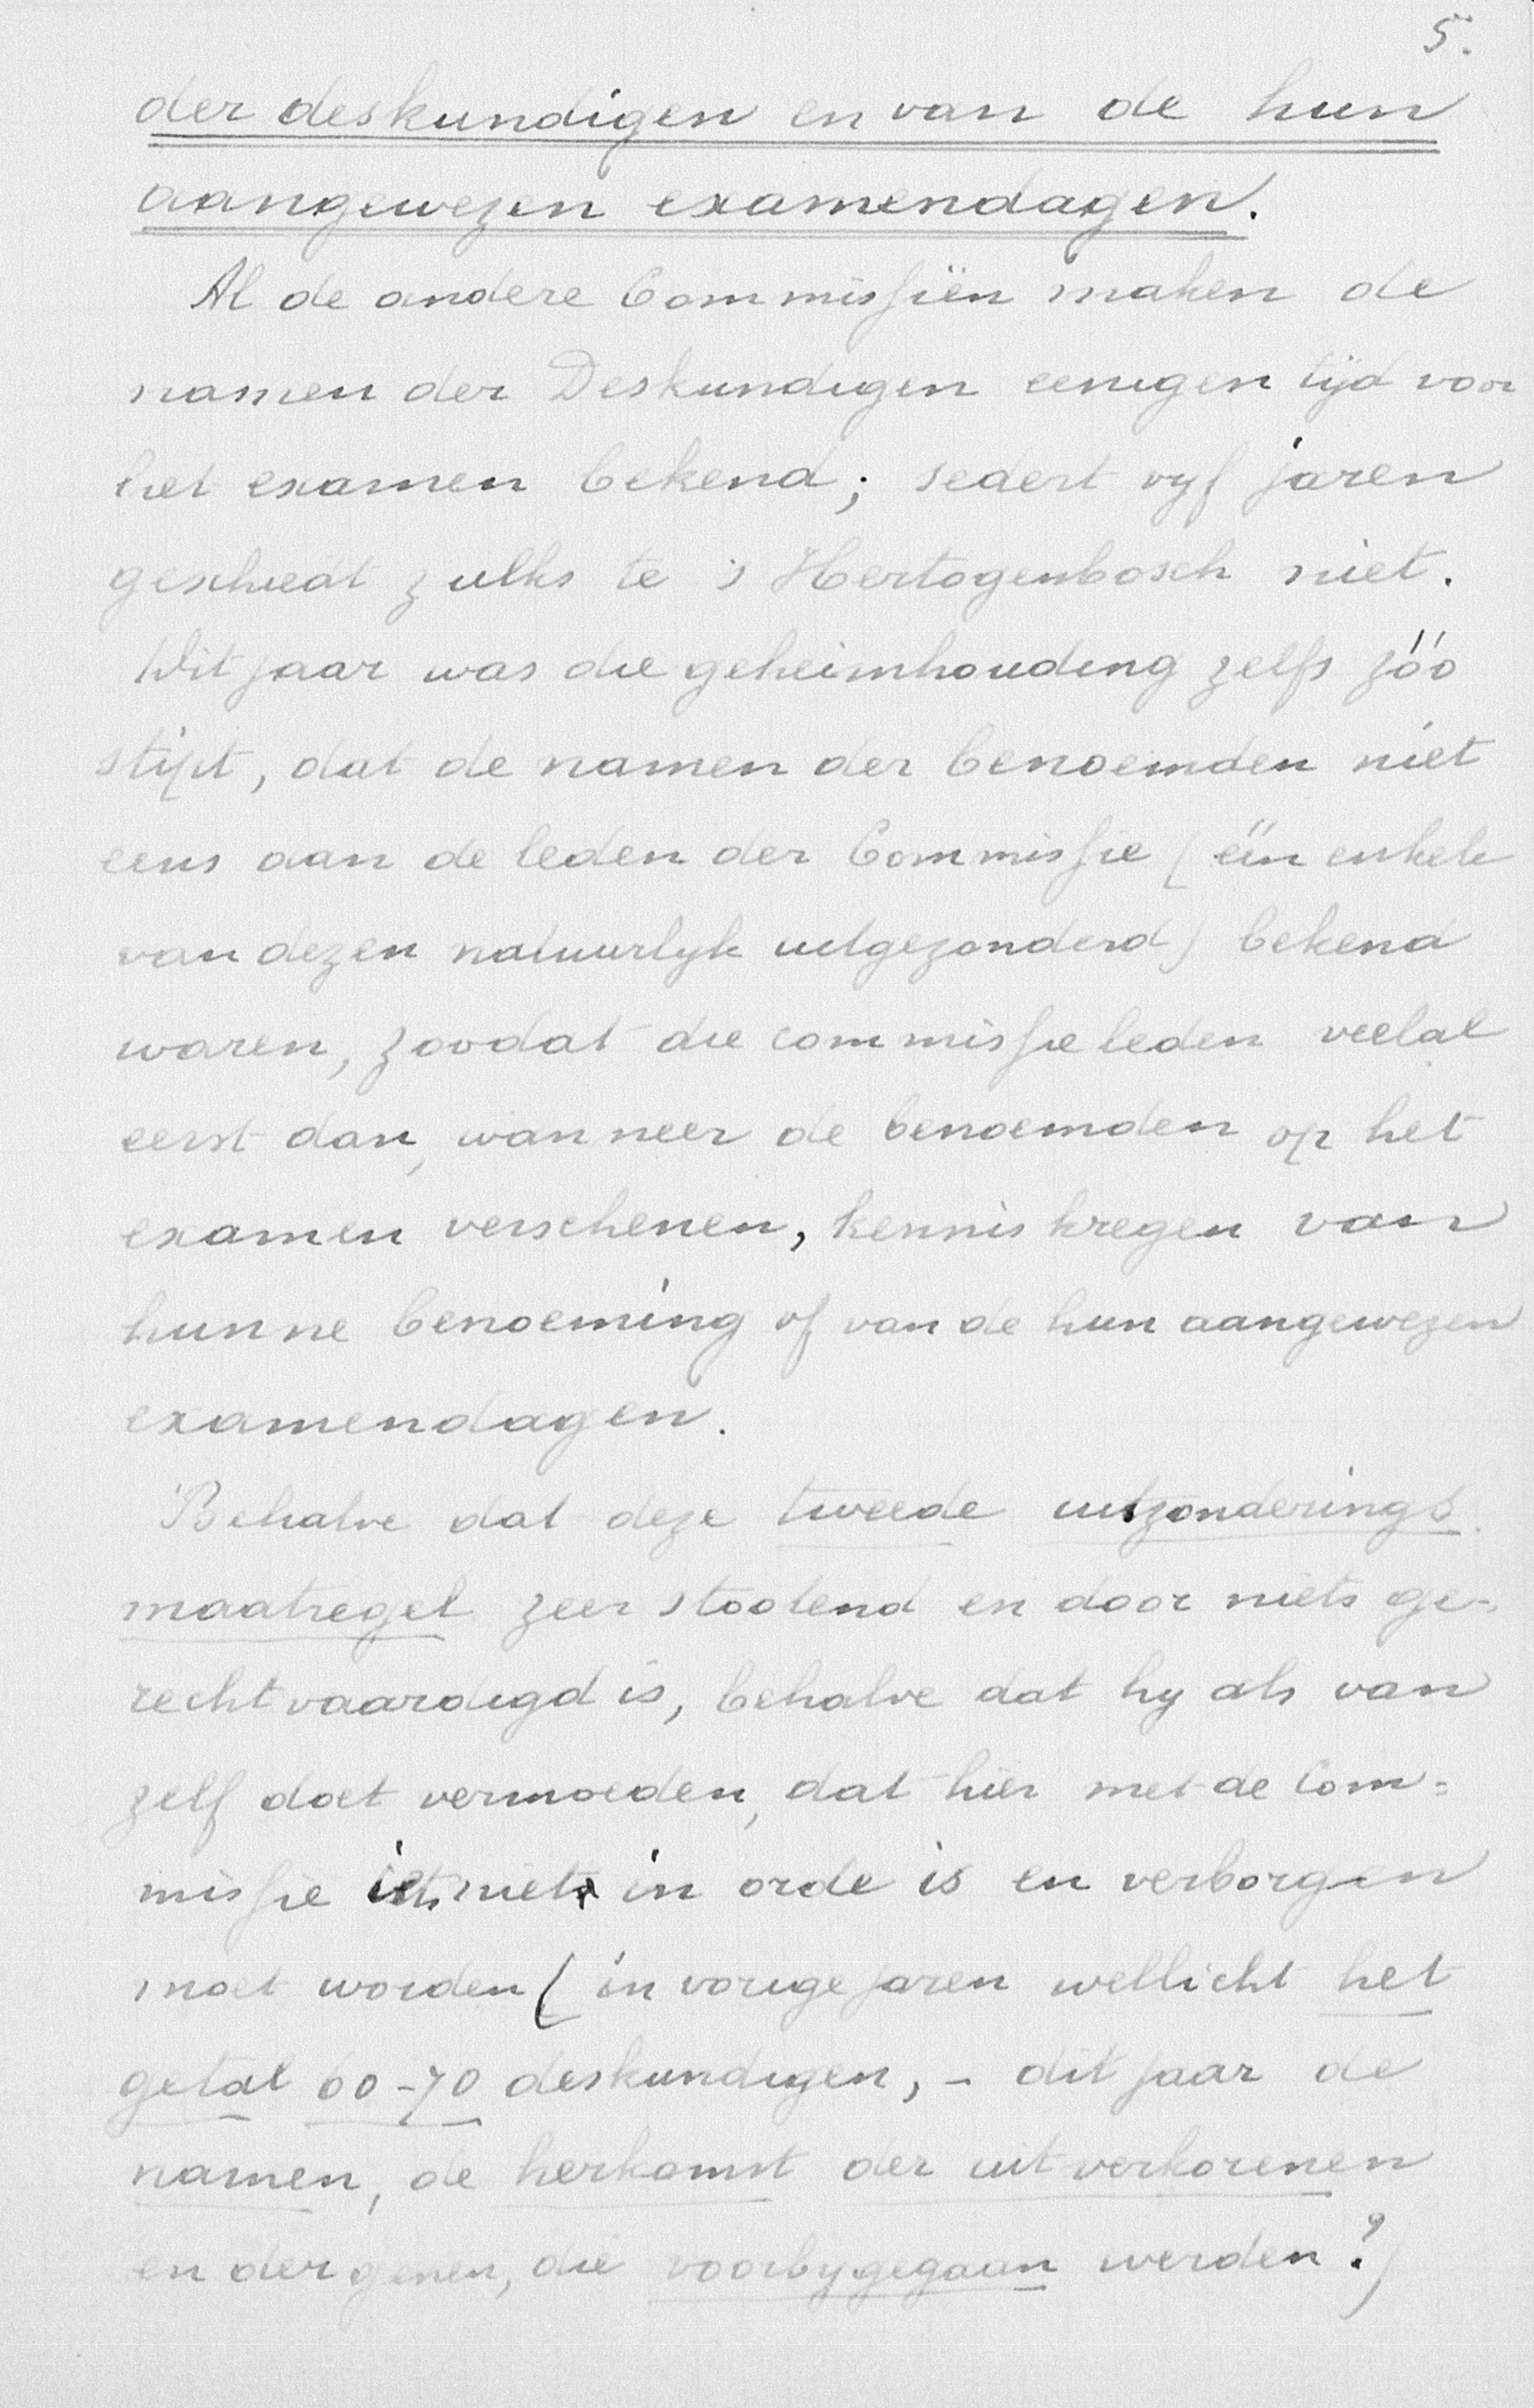 5.
der deskundigen en van de hun
aangewezen examendagen.
Al de andere Commissiën maken de
namen der Deskundigen eenigen tijd voor
het examen bekend; sedert vyf jaren
geschiedt zulks te 's Hertogenbosch niet.
Dit jaar was die geheimhouding zelfs zóó
stipt, dat de namen der benoemden niet
eens aan de leden der Commissie (één enkele
van dezen natuurlyk uitgezonderd) bekend
waren, zoodat die commissieleden veelal
eerst dan, wanneer de benoemden op het
examen verschenen, kennis kregen van
hunne benoeming of van de hun aangewezen
examendagen.
Behalve dat deze tweede uitzonderings
maatregel zeer stootend en door niets ge-
rechtvaardigd is, behalve dat hy als van
zelf doet vermoeden, dat hier met de Com=
missie iets niet in orde is en verborgen
moet worden (in vorige jaren wellicht het
getal 60-70 deskundigen, - dit jaar de
namen, de herkomst der uitverkorenen
en dergenen, die voorbygegaan werden?)